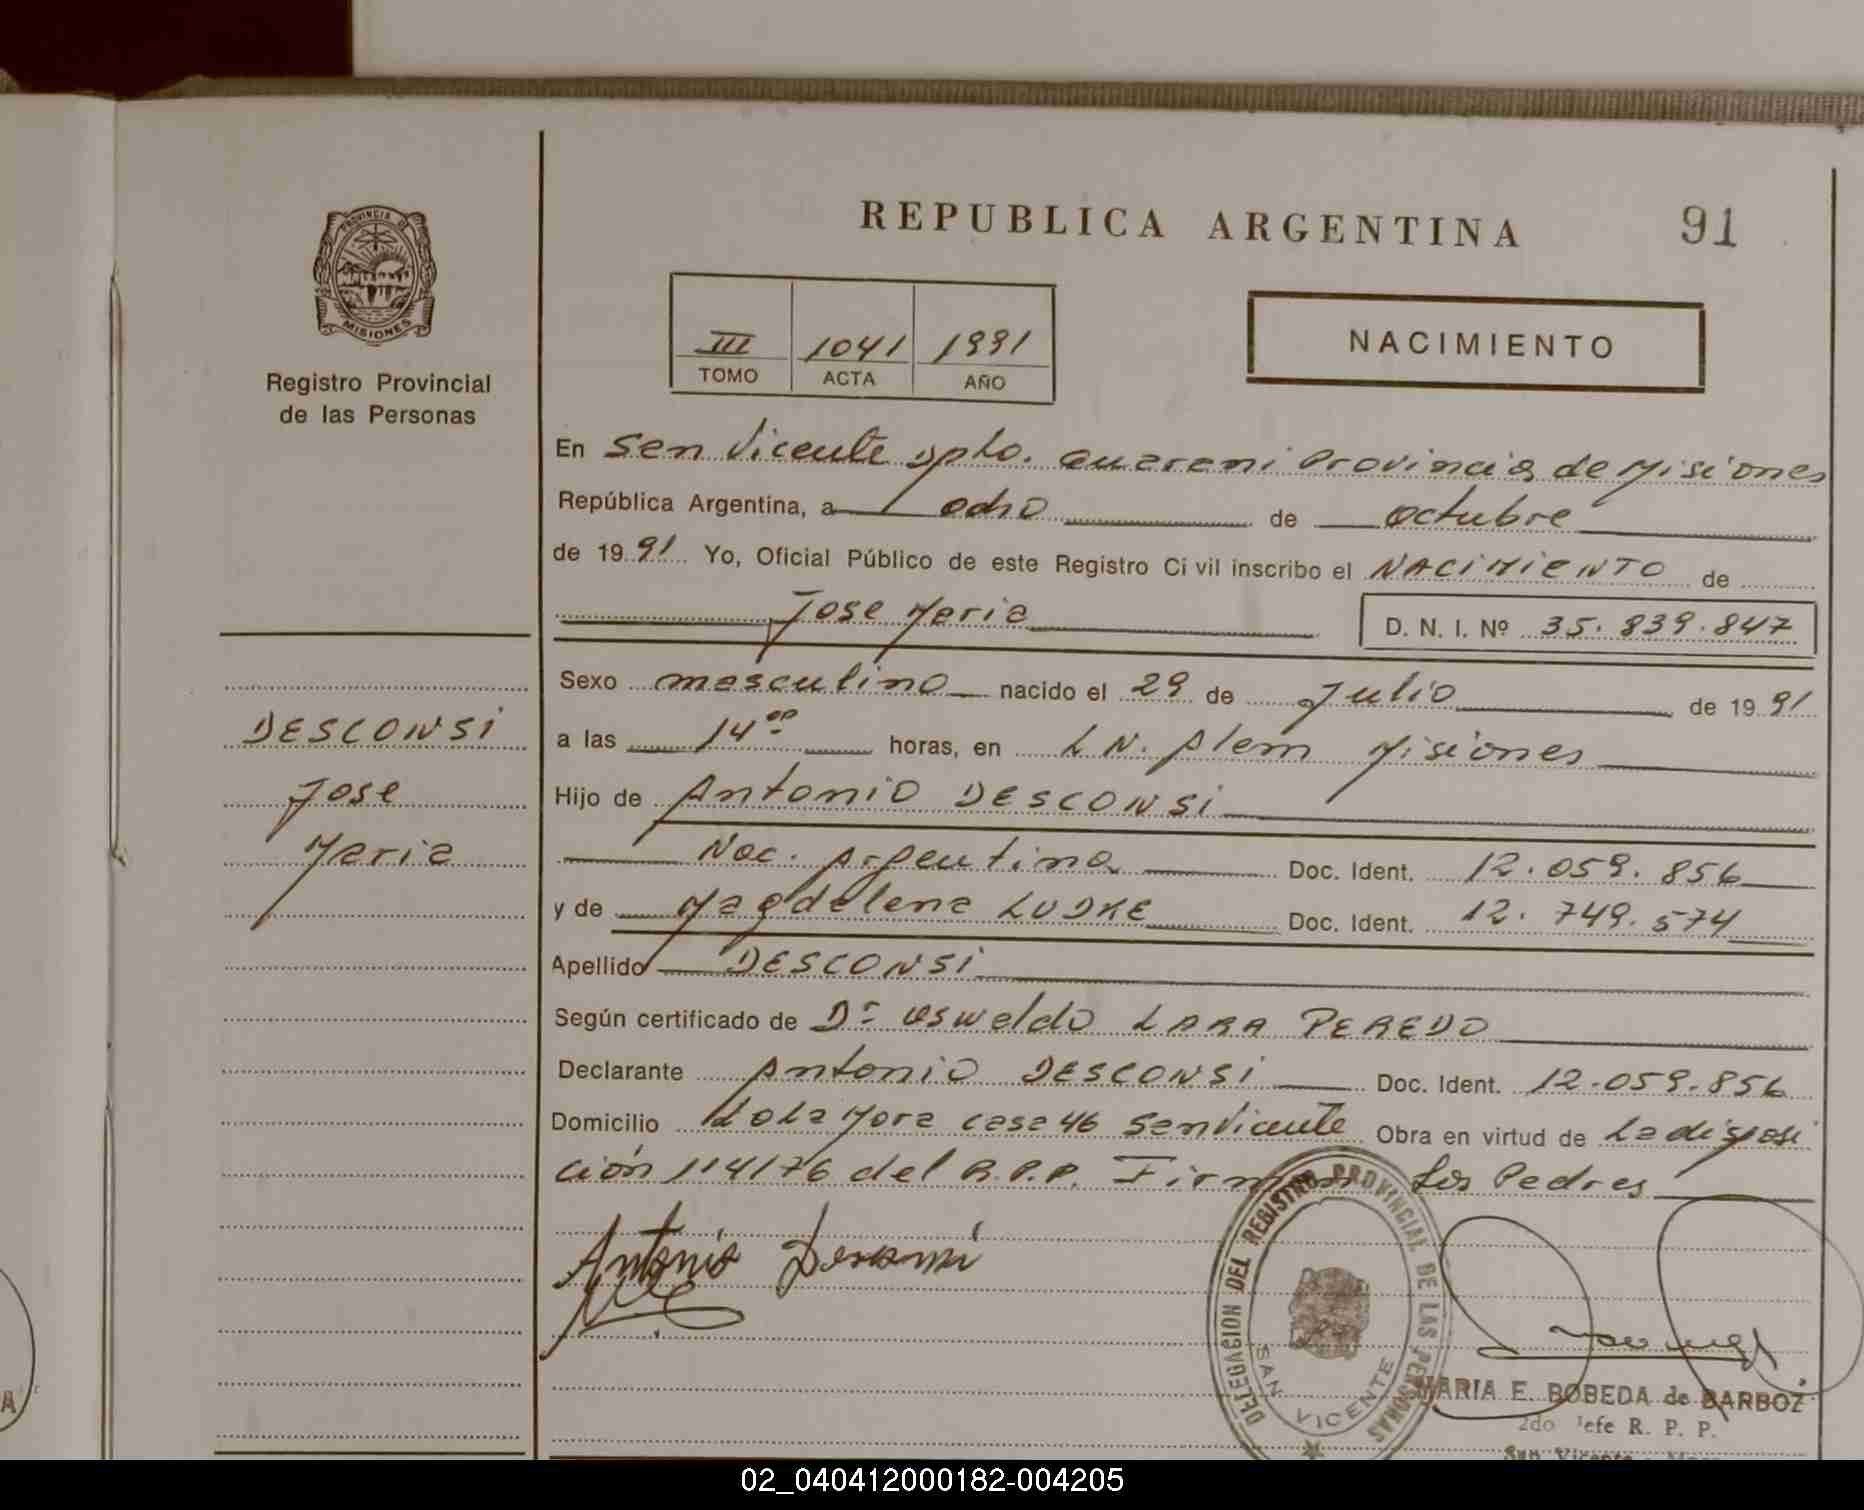 REPUBLICA ARGENTINA
91
PROVINCIA DE
MISIONES
Registro Provincial
de las Personas
III 1041 1991
TOMO ACTA AÑO
NACIMIENTO
En San Vicente Dpto. Guarani Provincia de Misiones
República Argentina, a ocho de octubre
de 1991 Yo, Oficial Público de este Registro Civil inscribo el NACIMIENTO de
Jose Maria D. N. I. Nº 35.839.847
Sexo masculino nacido el 29 de Julio de 1991
a las 14 00 horas, en L.N. Alem Misiones
Hijo de Antonio DESCONSI
Nac. Argentina Doc. Ident. 12.059.856
y de Magdalena LUDKE Doc. Ident. 12.749.574
Apellido DESCONSI
Según certificado de Dr Oswaldo LARA PEREDO
Declarante Antonio DESCONSI Doc. Ident. 12.059.856
Domicilio Lola Mora casa 46 San Vicente Obra en virtud de La disposi
ción 114/76 del R.P.P. Firman Los Padres
DESCONSI
Jose
Maria
Antonio Desconsi
DELEGACION DEL REGISTRO PROVINCIAL DE LAS PERSONAS
SAN VICENTE
MARIA E. BOBEDA de BARBOZ
2do Jefe R. P. P.
San Vicente
A
02_040412000182-004205